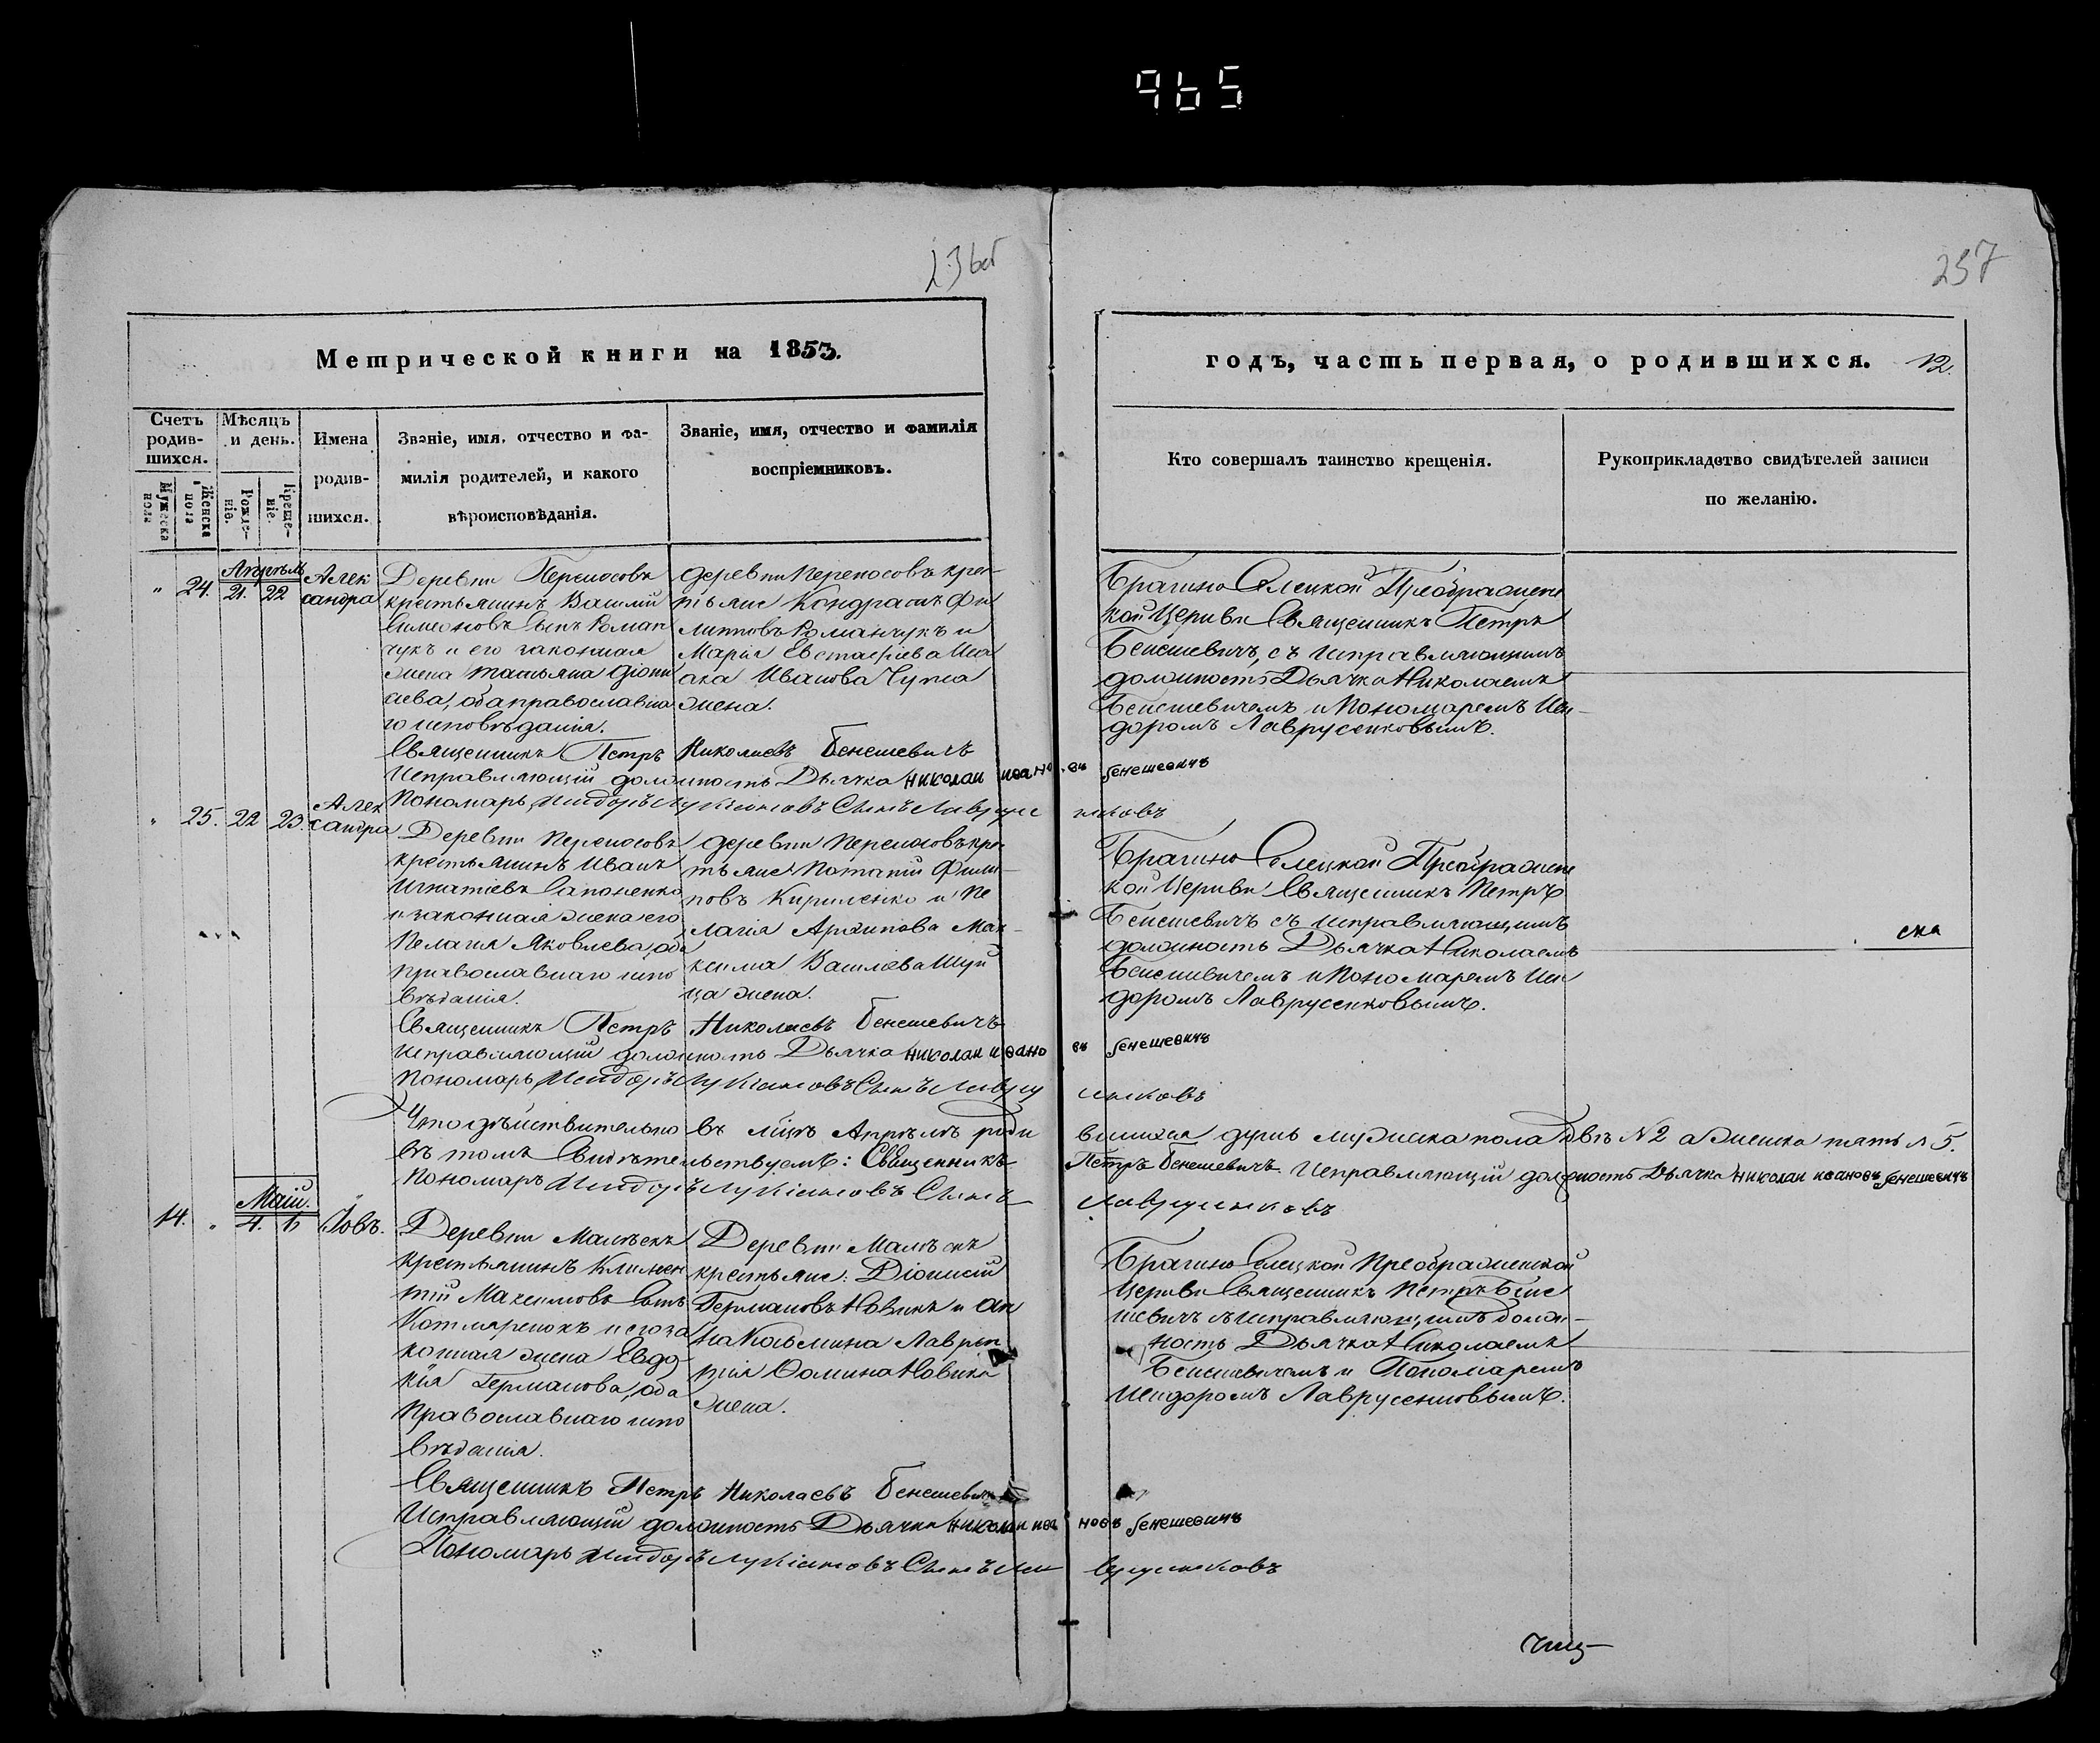 965
236об
257
Метрической книги на 1853.
Счетъ родившихся.
Мужеска пола
Женска пола
Мѣсяцъ и день.
Рожденіе.
Крещеніе.
Имена
родив-
шихся.
Званіе, имя, отчество и фа-
милія родителей, и какого
вѣроисповѣданія.
Званіе, имя, отчество и фамилія
воспріемниковъ.
годъ, часть первая, о родившихся. 12.
Кто совершалъ таинство крещенія.
Рукоприкладство свидѣтелей записи
по желанію.
Апрѣль
" 24. 21. 22
Алек
сандра
Деревни Переносовъ
крестьянинъ Василій
Симеоновъ сынъ Роман
чукъ и его законная
жена Татьяна Діони
сіева, оба православна
го исповѣданія.
деревни Переносовъ крес-
тьяне Кондратъ Фи
липповъ Романчукъ и
Марія Евстафіева Иса
ака Иванова
жена.
Брагино Селецкой Преображенс
кой Церкви Священникъ Петръ
Бенешевичъ, съ исправляющимъ
должность Дьячка Николаемъ
Бенешевичемъ и Пономаремъ Иси-
доромъ Лаврусенковымъ.
Священникъ Петръ Николаевъ Бенешевичъ
Исправляющій должность Дьячка николай ивановъ бенешевичъ
Пономарь Исидоръ Лукіановъ Сынъ Лаврусенковъ
" 25. 22 23.
Алек
сандра
Деревни Переносовъ
крестьянинъ Иванъ
Игнатіевъ Сапоненко
и законная жена его
Пелагія Яковлева, оба
православнаго испо
вѣданія.
деревни Переносовъ крес
тьяне Потапій Филип-
повъ Кириленко и Пе
лагія Архипова Мак-
сима Василіева
жена.
Брагино Селецкой Преображенс
кой Церкви Священникъ Петръ
Бенешевичъ съ исправляющимъ
должность Дьячка Николаемъ
Бенешевичемъ и Пономаремъ Иси
доромъ Лаврусенковымъ.
ска
Священникъ Петръ Николаевъ Бенешевичъ
исправляющій должность Дьячка николай ивановъ бенешевичъ
Пономарь Исидоръ Лукіановъ Сынъ Лаврусенковъ
Что дѣйствительно въ мцѣ Апрѣлѣ родившихся душъ мужеска пола двѣ №2 а женска пять №5.
въ томъ Свидѣтельствуемъ: Священникъ Петръ Бенешевичъ. Исправляющій должность Дьячка николай ивановъ бенешевичъ
Пономарь Исидоръ Лукіановъ Сынъ Лаврусенковъ
Маій.
14. " 4. 6
Іовъ.
Деревни Малѣекъ
крестьянинъ Климен
тій Максимовъ сынъ
Котляренокъ и его за
конная жена Евдо
кія Германова, оба
Православнаго испо
вѣданія.
Деревни Малѣекъ
крестьяне: Діонисій
Германовъ Новикъ и Ан
на Косьмина Лаврен
тія Ѳомина Новика
жена.
Брагино Селецкой Преображенской
Церкви Священникъ Петръ Бене
шевичъ съ исправляющимъ долж-
ность Дьячка Николаемъ
Бенешевичемъ и Пономаремъ
Исидоромъ Лаврусенковымъ.
Священникъ Петръ Николаевъ Бенешевичъ
Исправляющій должность Дьячка николай ивановъ бенешевичъ
Пономарь Исидоръ Лукіановъ Сынъ Лаврусенковъ